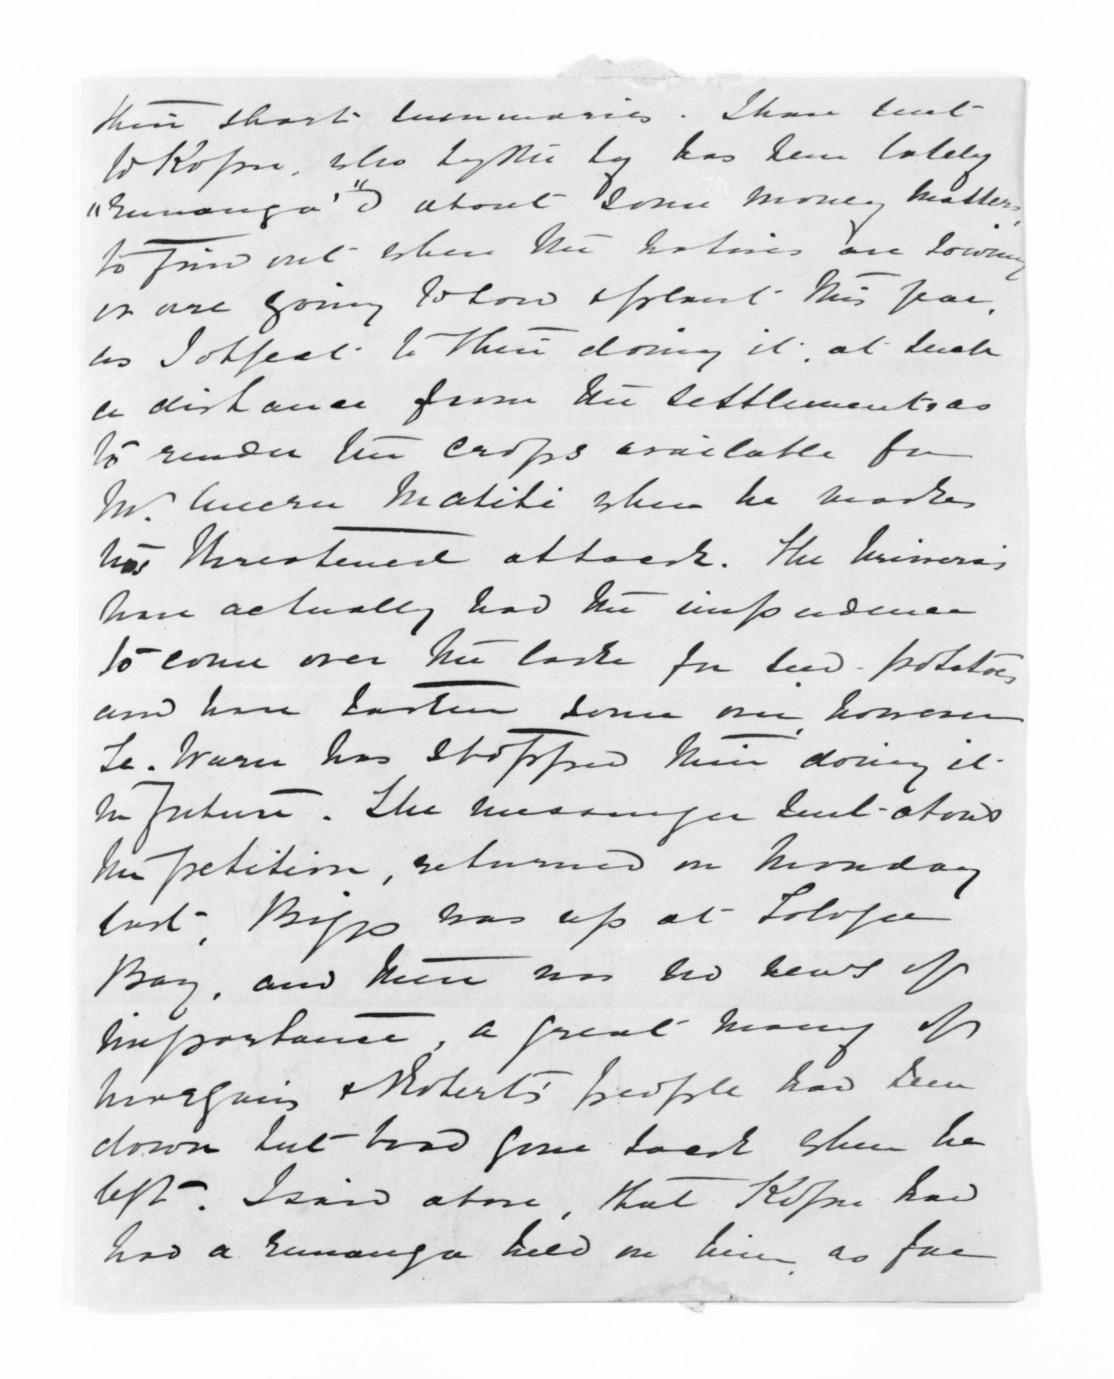 their short summaries. I have sent
to Kopu, who by the by has been lately
"runanga"d about some money matters,
to find out where the natives are sowing
or are going to sow & plant this year,
as I object to their doing it, at such
a distance from the settlement, as
to render the crops available for
Mr. Anaru Matiti when he makes
his threatened attack. The
have actually had the impudence
to come over the lake for seed potatoes
and have taken some over, however
Te Waru has stopped their doing it
in future. The messenger sent about
the petition, returned on Monday
last, Biggs was up at Tologa
Bay, and there was no news of
importance, a great many of
Morgain's & Robert's people had been
down but had gone back when he
left. I said above, that Kopu had
had a runanga held on him, as far